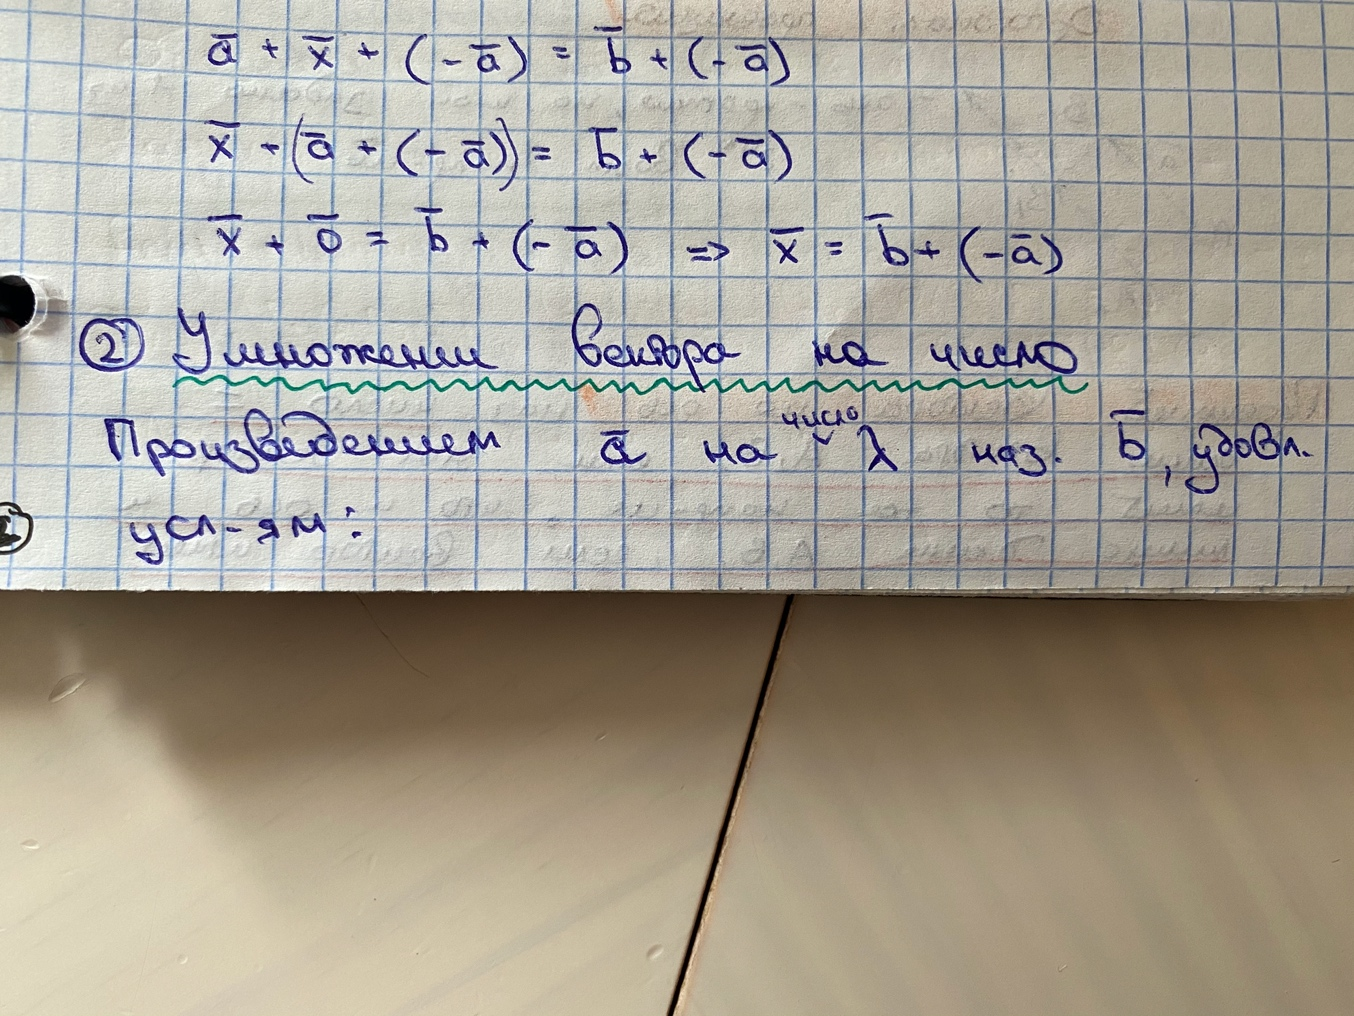 a̅ + x̅ + (-a̅) = b̅ + (-a̅)
x̅ + (a̅ + (-a̅)) = b̅ + (-a̅)
x̅ + 0̅ = b̅ + (-a̅) => x̅ = b̅ + (-a̅)
② Умножении вектора на число
Произведением a̅ на число λ наз. b̅, удовл.
усл-ям: